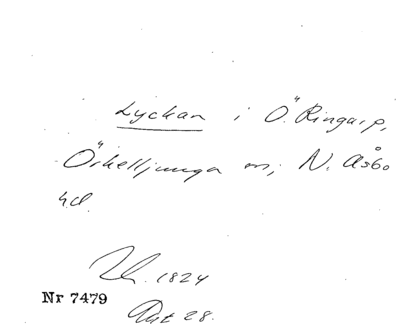 Lyckan i Ö. Ringarp,
Örkelljunga sn, N. Åsbo
hd.
1824
Nr 7479
Akt 28.